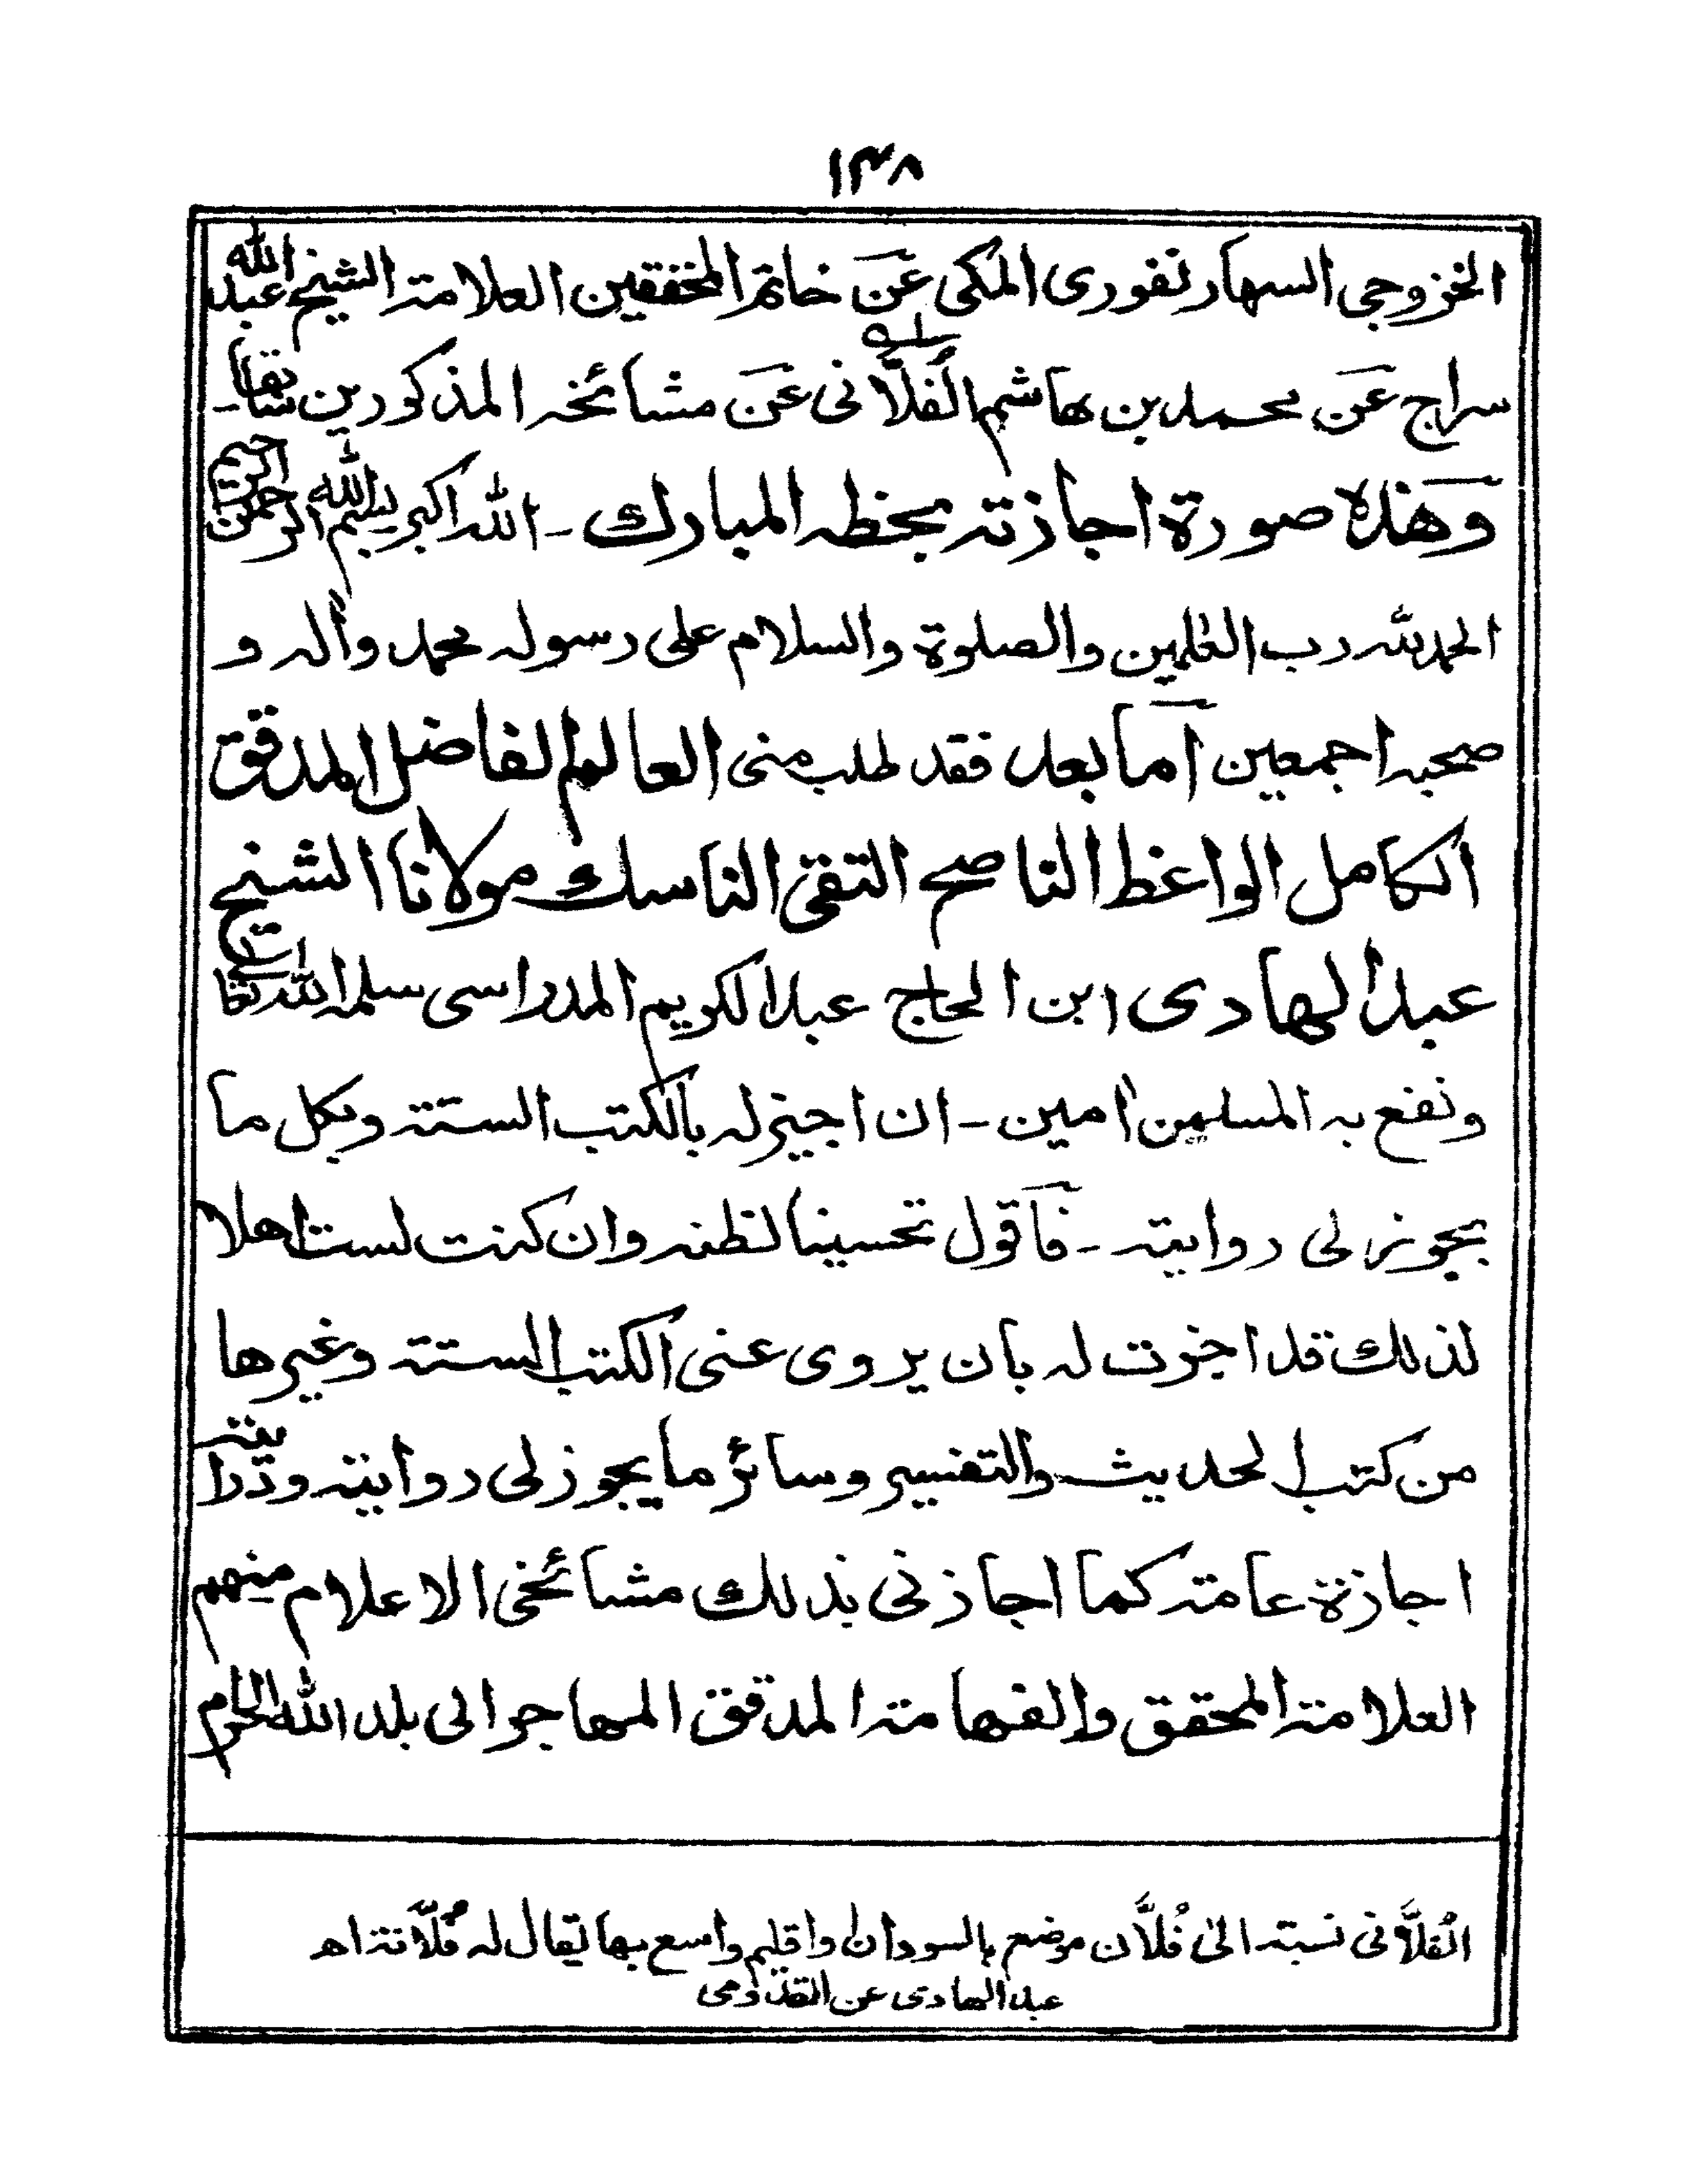 ١٣٨
الخزوجي السهارنفوري المكى عَن خاتم المحققين العلامة الشيخ عبد الله
سراج عَن محمد بن هاشم الفُلَّانى عَن مشائخه المذكورين سابقا
وَهٰذه صورة اجازته بخطه المبارك - الله اكبر بسم الله الرحمن الرحيم
الحمد لله رب العٰلمين والصلوة والسلام على رسوله محمد واٰله و
صحبه اجمعين اما بعد فقد طلب منى العالم الفاضل المدقق
الكامل الواعظ الناصح التقى الناسك مولانا الشيخ
عبد الهادى ابن الحاج عبد الكريم المدراسى سلمه الله تعالى
ونفع به المسلمين اٰمين - ان اجيز له بالكتب الستة وبكل ما
يجوز لى روايته - فاقول تحسينا لظنه وان كنت لست اهلا
لذلك قد اجزت له بان يروى عنى الكتب الستة وغيرها
من كتب الحديث والتفسير وسائر ما يجوز لى روايته ودرايته
اجازة عامة كما اجازنى بذلك مشائخى الاعلام منهم
العلامة المحقق والفهامة المدقق المهاجر الى بلد الله الحرام
الفُلَّانى نسبة الىٰ فُلَّان موضع بالسودان واقليم واسع بها يقال له فُلَّانة اھ
عبد الهادى عن القدومى